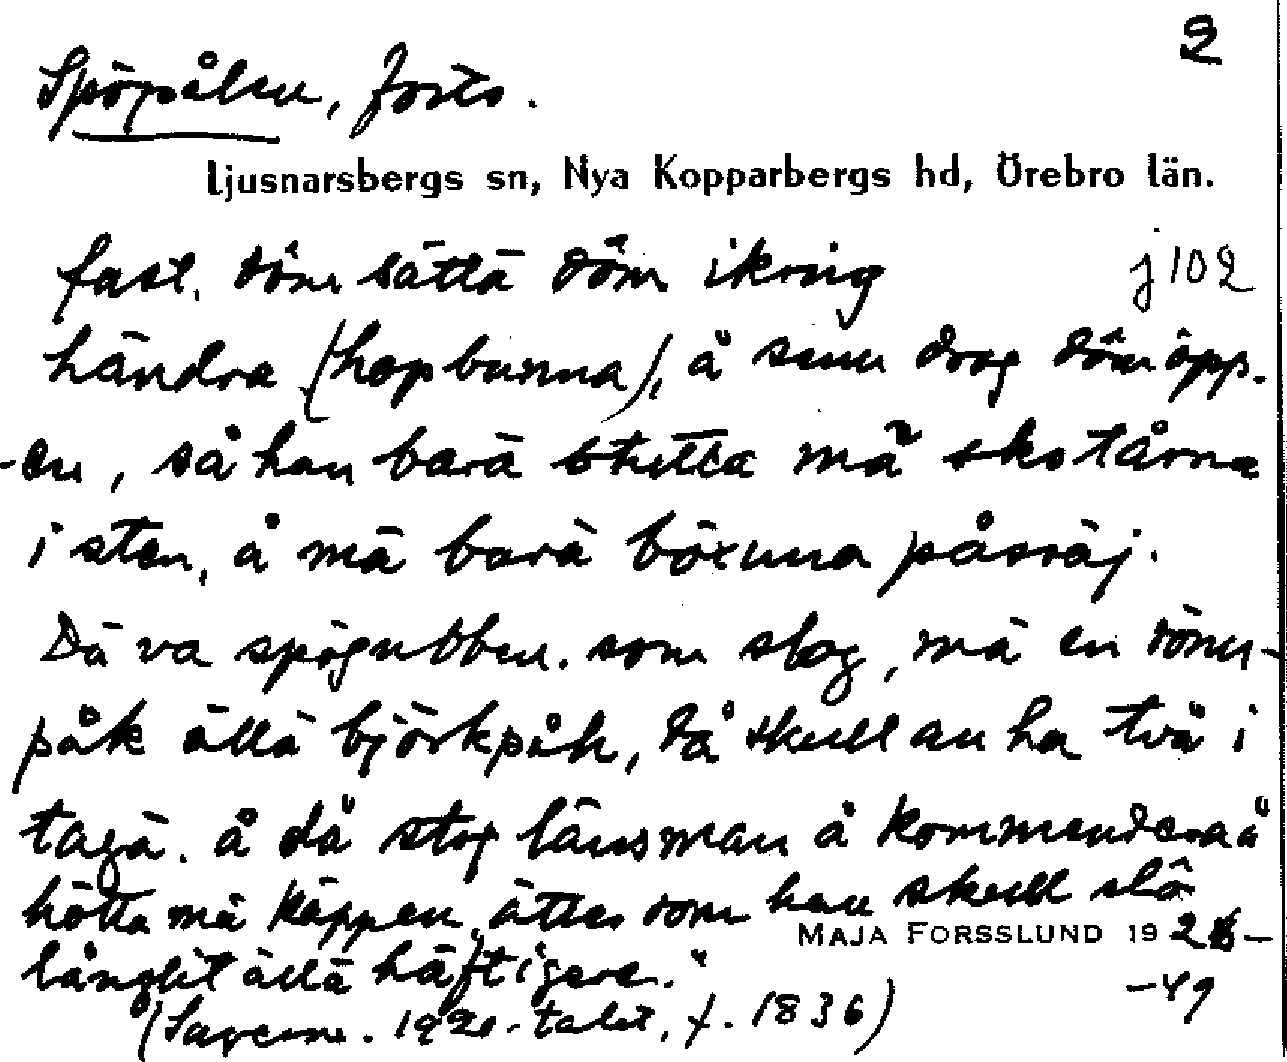 2
Spöpålen, forts.
Ljusnarsbergs sn, Nya Kopparbergs hd, Örebro län.
fast, döm sättä döm ikring j 102
händra (hopbunna), å senn drog döm öpp-
-en, så han barä stutta mä skotårna
i sten, å mä barä böxuna påsräj.
Dä va spögubben som slog, mä en rönn-
påk ällä björkpåk, då skull an ha två i
tagä. å då stog länsman å kommendera å
hötta mä käppen, ätter som han skull slå
långlit ällä häftigare."
MAJA FORSSLUND 192
-49
1920-talet, f. 1836)